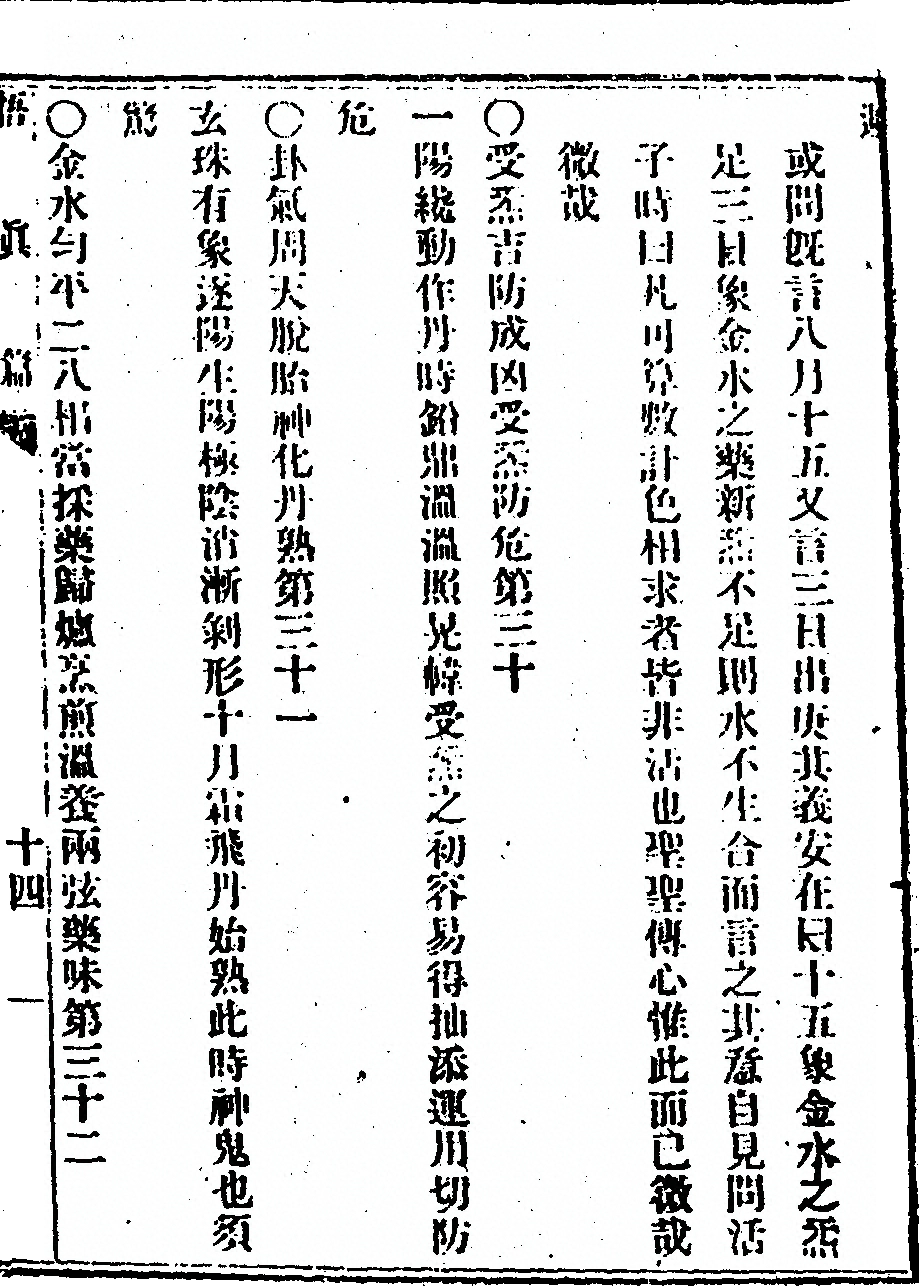 或問旣言八月十五又言三日出庚其義安在曰十五象金水之炁
足三日象金水之藥新炁不足則水不生合而言之其意自見問活
子時曰凡可算數計色相求者皆非活也聖聖傳心惟此而已微哉
微哉
○受炁吉防成凶受炁防危第三十
一陽纔動作丹時鉛鼎溫溫照晃幃受炁之初容易得抽添運用切防
危
○卦氣周天脫胎神化丹熟第三十一
玄珠有象逐陽生陽極陰消漸剝形十月霜飛丹始熟此時神鬼也須
驚
○金水勻平二八相當採藥歸爐烹煎溫養兩弦藥味第三十二
悟眞篇
十四